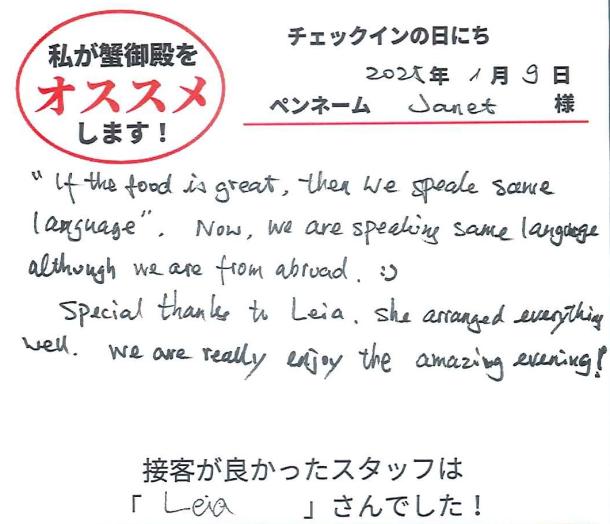 私が蟹御殿を
オススメ
します！
チェックインの日にち
2025年 1月9日
ペンネーム Janet 様
"If the food is great, then we speak same
language". Now, we are speaking same language
although we are from abroad. :)
Special thanks to Leia. She arranged everything
well. We are really enjoy the amazing evening!
接客が良かったスタッフは
「 Leia 」さんでした！